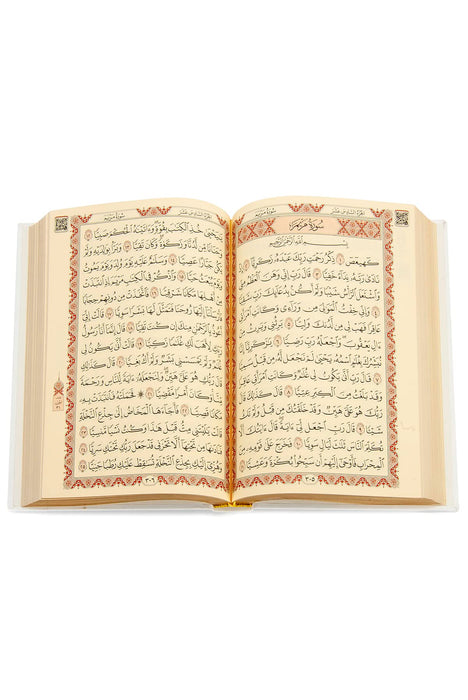 الجزء السادس عشر
سورة مريم
سُورَةُ مَرْيَمَ
بِسْمِ اللَّهِ الرَّحْمَٰنِ الرَّحِيمِ
كهيعص ١ ذِكْرُ رَحْمَتِ رَبِّكَ عَبْدَهُ زَكَرِيَّا ٢ إِذْ
نَادَىٰ رَبَّهُ نِدَاءً خَفِيًّا ٣ قَالَ رَبِّ إِنِّي وَهَنَ الْعَظْمُ مِنِّي
وَاشْتَعَلَ الرَّأْسُ شَيْبًا وَلَمْ أَكُنْ بِدُعَائِكَ رَبِّ شَقِيًّا ٤
وَإِنِّي خِفْتُ الْمَوَالِيَ مِنْ وَرَاءِي وَكَانَتِ امْرَأَتِي
عَاقِرًا فَهَبْ لِي مِنْ لَدُنْكَ وَلِيًّا ٥ يَرِثُنِي وَيَرِثُ مِنْ
ءَالِ يَعْقُوبَ وَاجْعَلْهُ رَبِّ رَضِيًّا ٦ يَٰزَكَرِيَّا إِنَّا
نُبَشِّرُكَ بِغُلَٰمٍ اسْمُهُ يَحْيَىٰ لَمْ نَجْعَلْ لَهُ مِنْ قَبْلُ سَمِيًّا ٧
قَالَ رَبِّ أَنَّىٰ يَكُونُ لِي غُلَٰمٌ وَكَانَتِ امْرَأَتِي عَاقِرًا
وَقَدْ بَلَغْتُ مِنَ الْكِبَرِ عِتِيًّا ٨ قَالَ كَذَٰلِكَ قَالَ
رَبُّكَ هُوَ عَلَيَّ هَيِّنٌ وَقَدْ خَلَقْتُكَ مِنْ قَبْلُ وَلَمْ تَكُ
شَيْئًا ٩ قَالَ رَبِّ اجْعَلْ لِي ءَايَةً قَالَ ءَايَتُكَ أَلَّا تُكَلِّمَ
النَّاسَ ثَلَٰثَ لَيَالٍ سَوِيًّا ١٠ فَخَرَجَ عَلَىٰ قَوْمِهِ مِنَ
الْمِحْرَابِ فَأَوْحَىٰ إِلَيْهِمْ أَنْ سَبِّحُوا بُكْرَةً وَعَشِيًّا ١١
٣٠٥
الجزء السادس عشر
سورة مريم
يَٰيَحْيَىٰ خُذِ الْكِتَٰبَ بِقُوَّةٍ وَءَاتَيْنَٰهُ الْحُكْمَ صَبِيًّا ١٢
وَحَنَانًا مِنْ لَدُنَّا وَزَكَوٰةً وَكَانَ تَقِيًّا ١٣ وَبَرًّا بِوَٰلِدَيْهِ وَلَمْ
يَكُنْ جَبَّارًا عَصِيًّا ١٤ وَسَلَٰمٌ عَلَيْهِ يَوْمَ وُلِدَ وَيَوْمَ يَمُوتُ
وَيَوْمَ يُبْعَثُ حَيًّا ١٥ وَاذْكُرْ فِي الْكِتَٰبِ مَرْيَمَ إِذِ انْتَبَذَتْ
مِنْ أَهْلِهَا مَكَانًا شَرْقِيًّا ١٦ فَاتَّخَذَتْ مِنْ دُونِهِمْ حِجَابًا
فَأَرْسَلْنَا إِلَيْهَا رُوحَنَا فَتَمَثَّلَ لَهَا بَشَرًا سَوِيًّا ١٧ قَالَتْ إِنِّي
أَعُوذُ بِالرَّحْمَٰنِ مِنْكَ إِنْ كُنْتَ تَقِيًّا ١٨ قَالَ إِنَّمَا أَنَا رَسُولُ
رَبِّكِ لِأَهَبَ لَكِ غُلَٰمًا زَكِيًّا ١٩ قَالَتْ أَنَّىٰ يَكُونُ لِي
غُلَٰمٌ وَلَمْ يَمْسَسْنِي بَشَرٌ وَلَمْ أَكُ بَغِيًّا ٢٠ قَالَ كَذَٰلِكِ
قَالَ رَبُّكِ هُوَ عَلَيَّ هَيِّنٌ وَلِنَجْعَلَهُ ءَايَةً لِلنَّاسِ وَرَحْمَةً
مِنَّا وَكَانَ أَمْرًا مَقْضِيًّا ٢١ فَحَمَلَتْهُ فَانْتَبَذَتْ بِهِ
مَكَانًا قَصِيًّا ٢٢ فَأَجَاءَهَا الْمَخَاضُ إِلَىٰ جِذْعِ النَّخْلَةِ
قَالَتْ يَٰلَيْتَنِي مِتُّ قَبْلَ هَٰذَا وَكُنْتُ نَسْيًا مَنْسِيًّا ٢٣
فَنَادَىٰهَا مِنْ تَحْتِهَا أَلَّا تَحْزَنِي قَدْ جَعَلَ رَبُّكِ تَحْتَكِ سَرِيًّا ٢٤
وَهُزِّي إِلَيْكِ بِجِذْعِ النَّخْلَةِ تُسَٰقِطْ عَلَيْكِ رُطَبًا جَنِيًّا ٢٥
٣٠٦